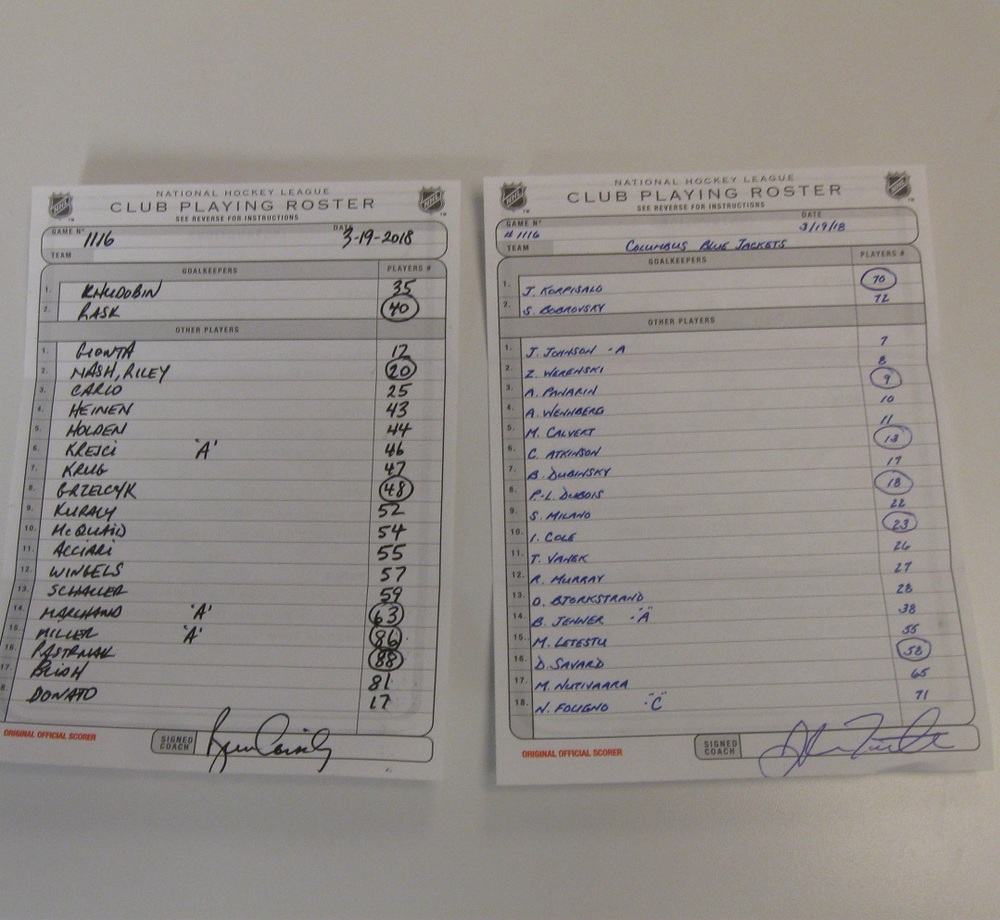 NATIONAL HOCKEY LEAGUE
CLUB PLAYING ROSTER
SEE REVERSE FOR INSTRUCTIONS
GAME Nº 1116 DATE 3-19-2018
TEAM
GOALKEEPERS PLAYERS #
1. KHUDOBIN 35
2. RASK 40
OTHER PLAYERS
1. GIONTA 12
2. NASH, RILEY 20
3. CARLO 25
4. HEINEN 43
5. HOLDEN 44
6. KREJCI 'A' 46
7. KRUG 47
8. GRZELCYK 48
9. KURALY 52
10. McQUAID 54
11. ACCIARI 55
12. WINGELS 57
13. SCHALLER 59
14. MARCHAND 'A' 63
15. MILLER 'A' 86
16. PASTRNAK 88
17. BLIDH 81
18. DONATO 17
ORIGINAL OFFICIAL SCORER
SIGNED COACH
NATIONAL HOCKEY LEAGUE
CLUB PLAYING ROSTER
SEE REVERSE FOR INSTRUCTIONS
GAME Nº #1116 DATE 3/19/18
TEAM COLUMBUS BLUE JACKETS
GOALKEEPERS PLAYERS #
1. J. KORPISALO 70
2. S. BOBROVSKY 72
OTHER PLAYERS
1. J. JOHNSON -A 7
2. Z. WERENSKI 8
3. A. PANARIN 9
4. A. WENNBERG 10
5. M. CALVERT 11
6. C. ATKINSON 13
7. B. DUBINSKY 17
8. P-L. DUBOIS 18
9. S. MILANO 22
10. I. COLE 23
11. T. VANEK 26
12. R. MURRAY 27
13. O. BJORKSTRAND 28
14. B. JENNER -"A" 38
15. M. LETESTU 55
16. D. SAVARD 58
17. M. NUTIVAARA 65
18. N. FOLIGNO "C" 71
ORIGINAL OFFICIAL SCORER
SIGNED COACH